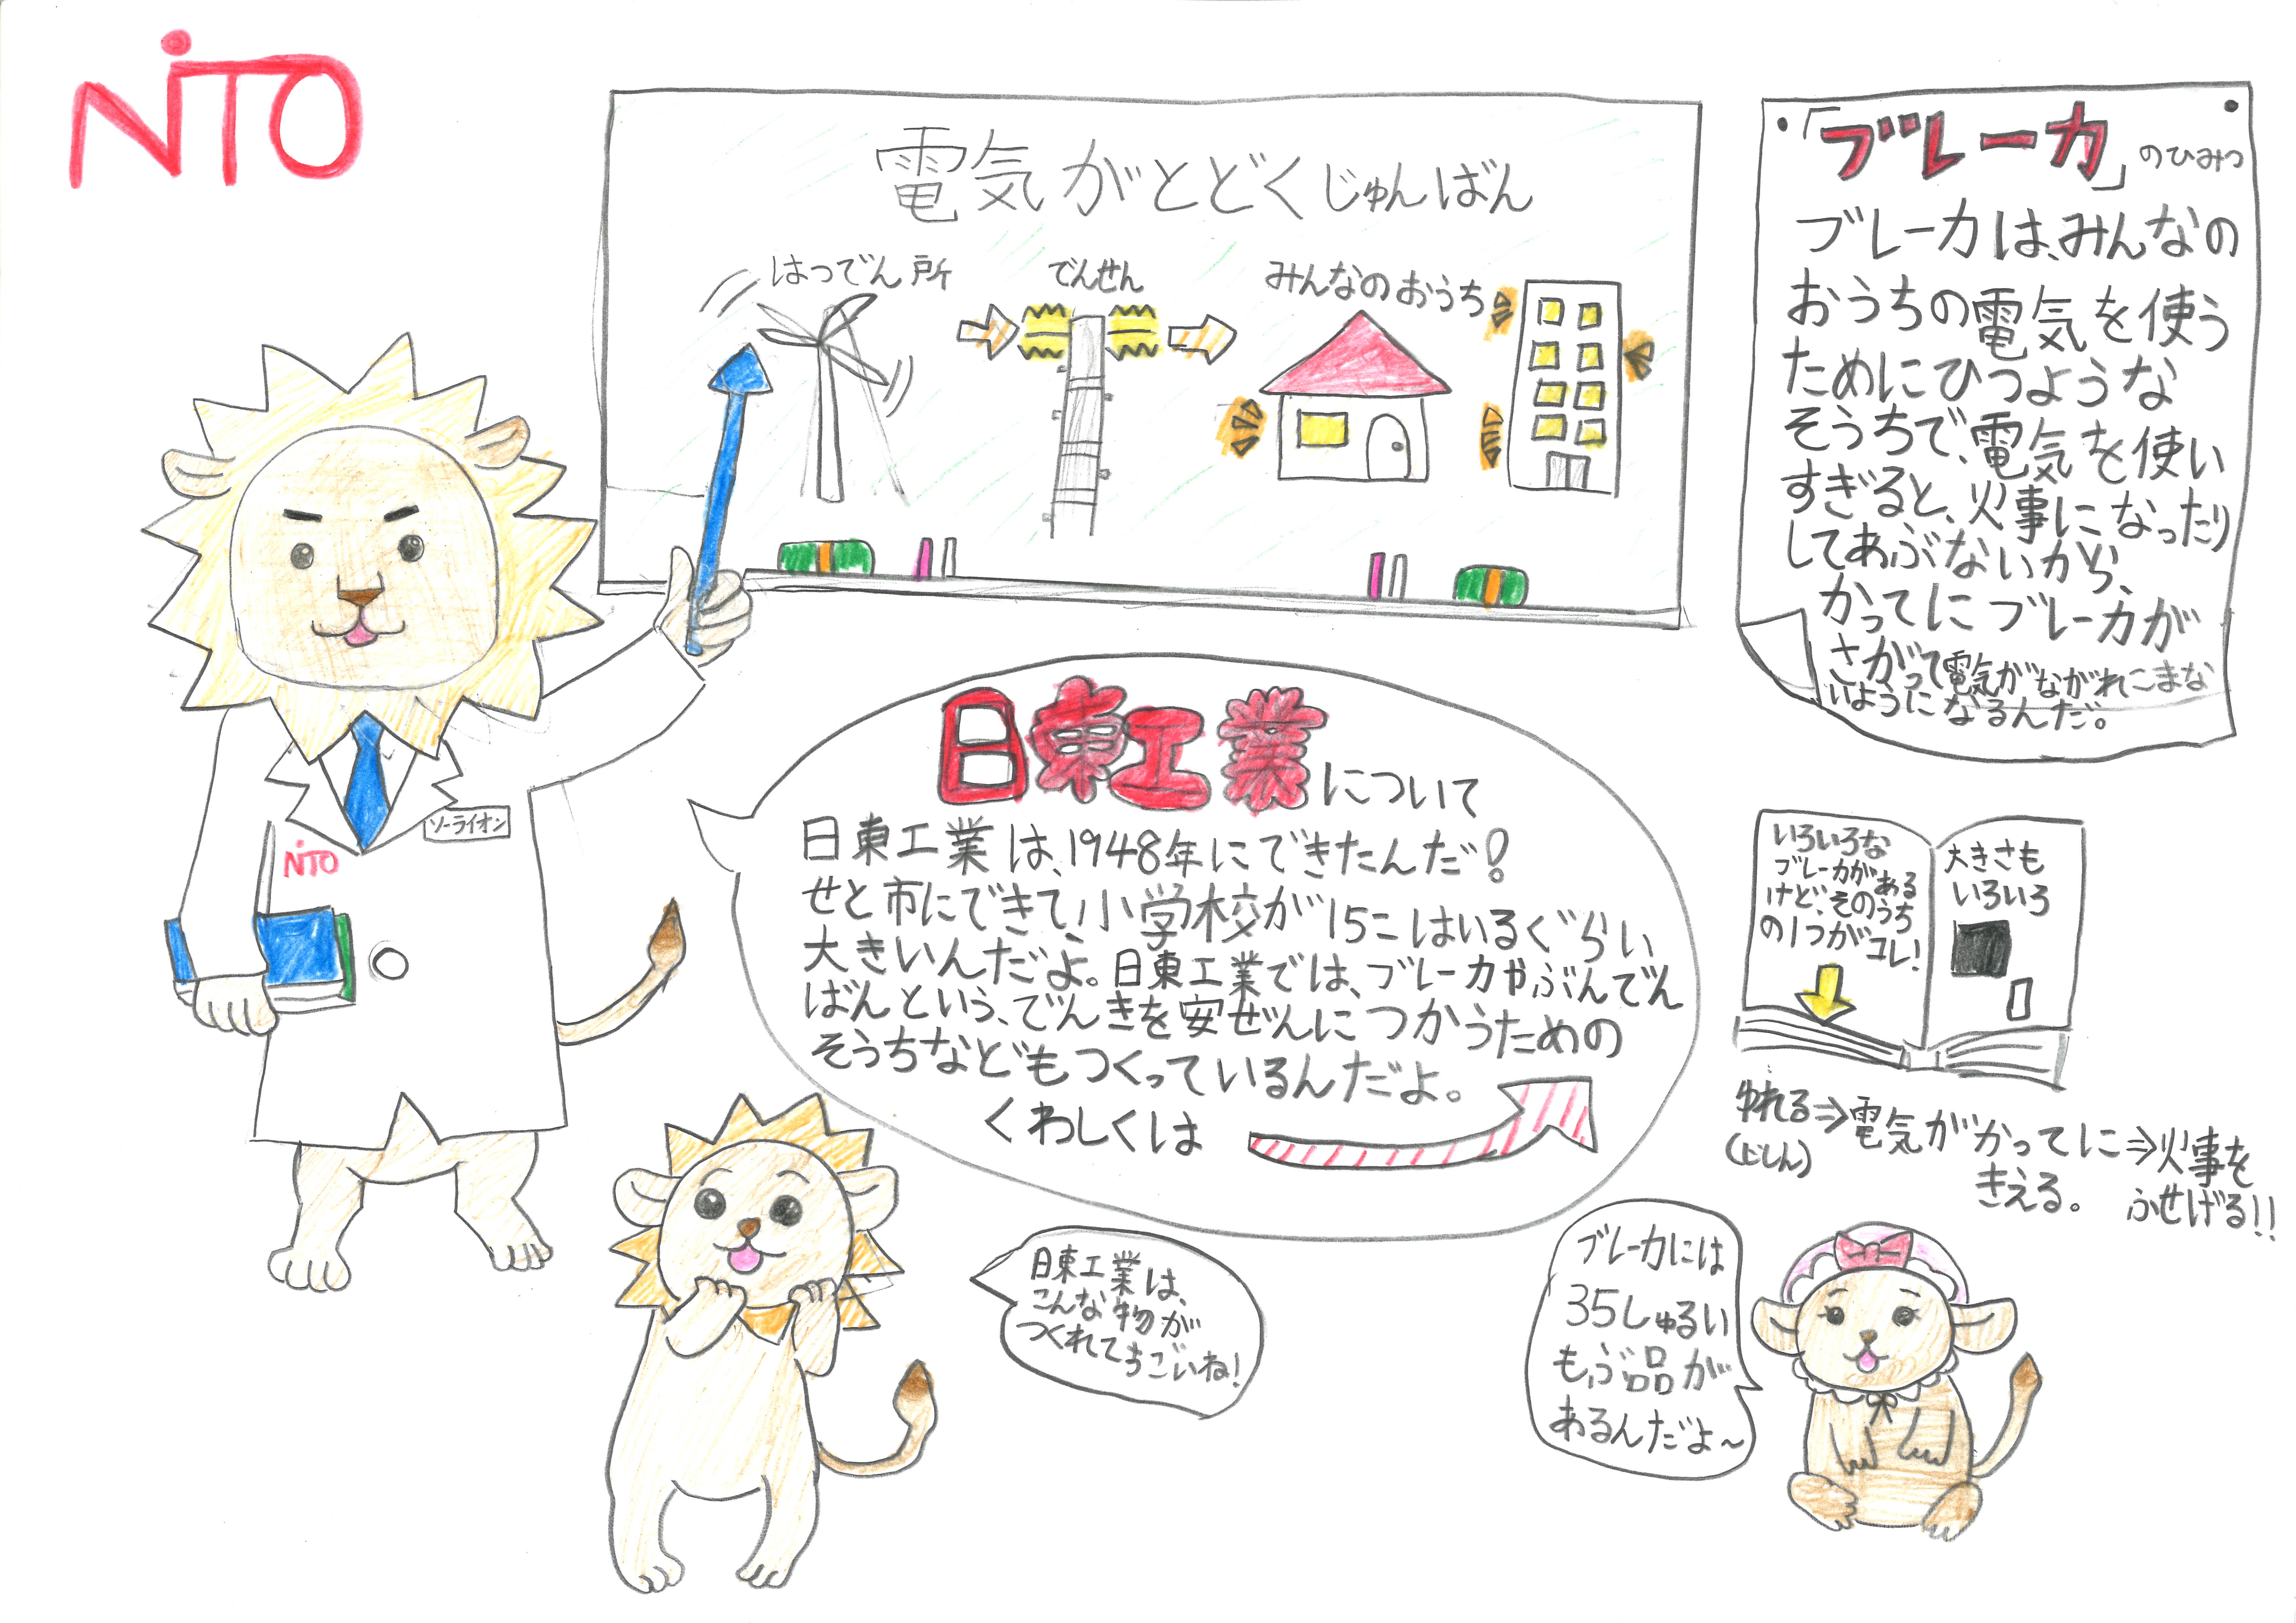 NiTO
電気がとどくじゅんばん
はつでん所
でんせん
みんなのおうち
「ブレーカ」のひみつ
ブレーカは、みんなの
おうちの電気を使う
ためにひつような
そうちで、電気を使い
すぎると、火事になったり
してあぶないから、
かってにブレーカが
さがって電気がながれこまな
いようになるんだ。
ソーライオン
NiTO
日東工業について
日東工業は、1948年にできたんだ!
せと市にできて、小学校が15こはいるぐらい
大きいんだよ。日東工業では、ブレーカやぶんでん
ばんという、でんきを安ぜんにつかうための
そうちなどもつくっているんだよ。
くわしくは
いろいろな
ブレーカがある
けど、そのうち
の1つがコレ!
大きさも
いろいろ
ゆれる⇒電気がかってに⇒火事を
(じしん)
きえる。
ふせげる!!
日東工業は、
こんな物が
つくれてすごいね!
ブレーカには
35しゅるい
もぶ品が
あるんだよ〜